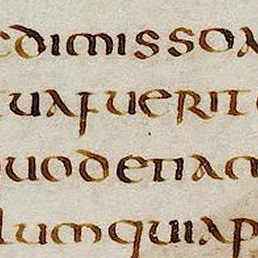 tdimissoa
tuafuerit
uodetiam
lumquiap